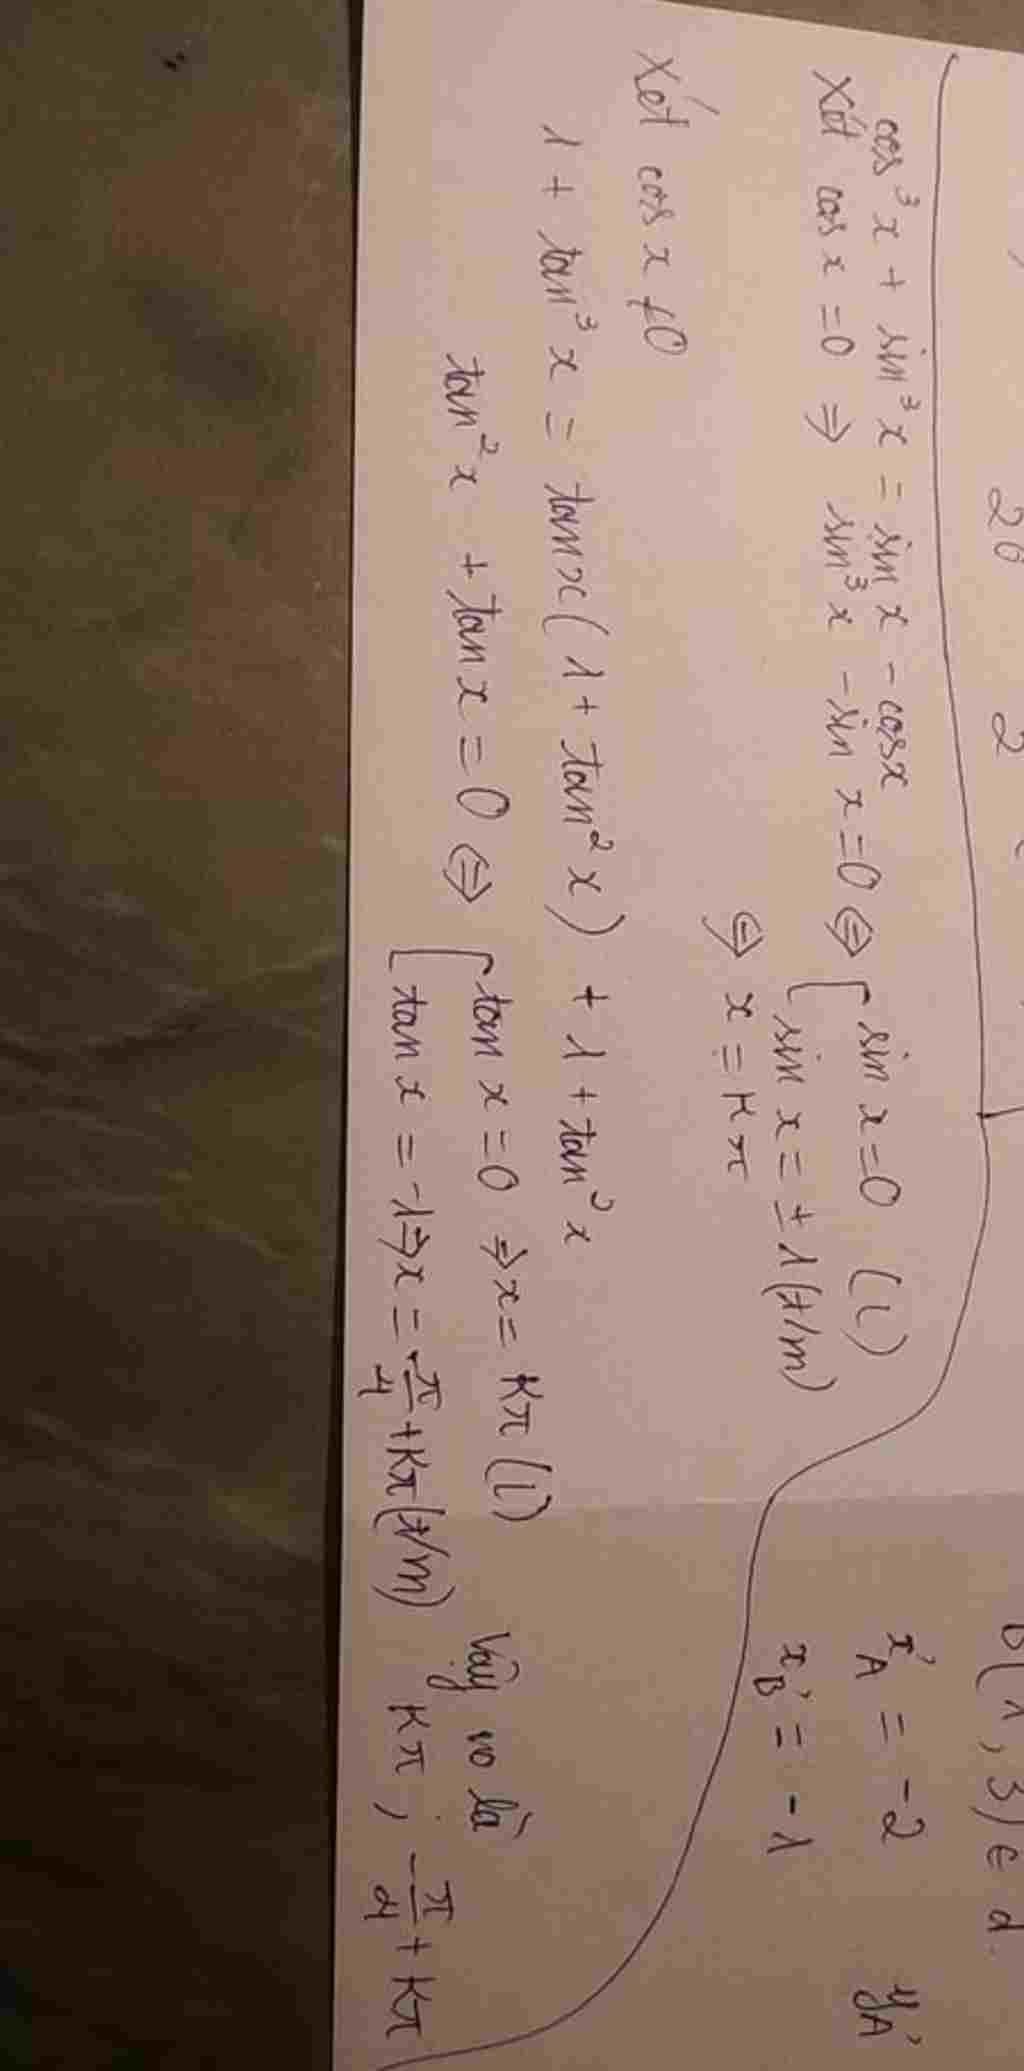 26 2
B(1, 3) ∈ d.
x'A = -2 y'A
x'B = -1
cos³x + sin³x = sin x - cosx
Xét cos x = 0 ⇒ sin³x - sin x = 0 ⇔ [ sin x = 0 (L)
sin x = ± 1 (t/m)
⇔ x = kπ
Xét cos x ≠ 0
1 + tan³x = tanx(1 + tan²x) + 1 + tan²x
tan²x + tan x = 0 ⇔ [ tan x = 0 ⇒ x = kπ (L)
tan x = -1 ⇒ x = -π/4 + kπ (t/m)
Vậy no là
kπ ; -π/4 + kπ